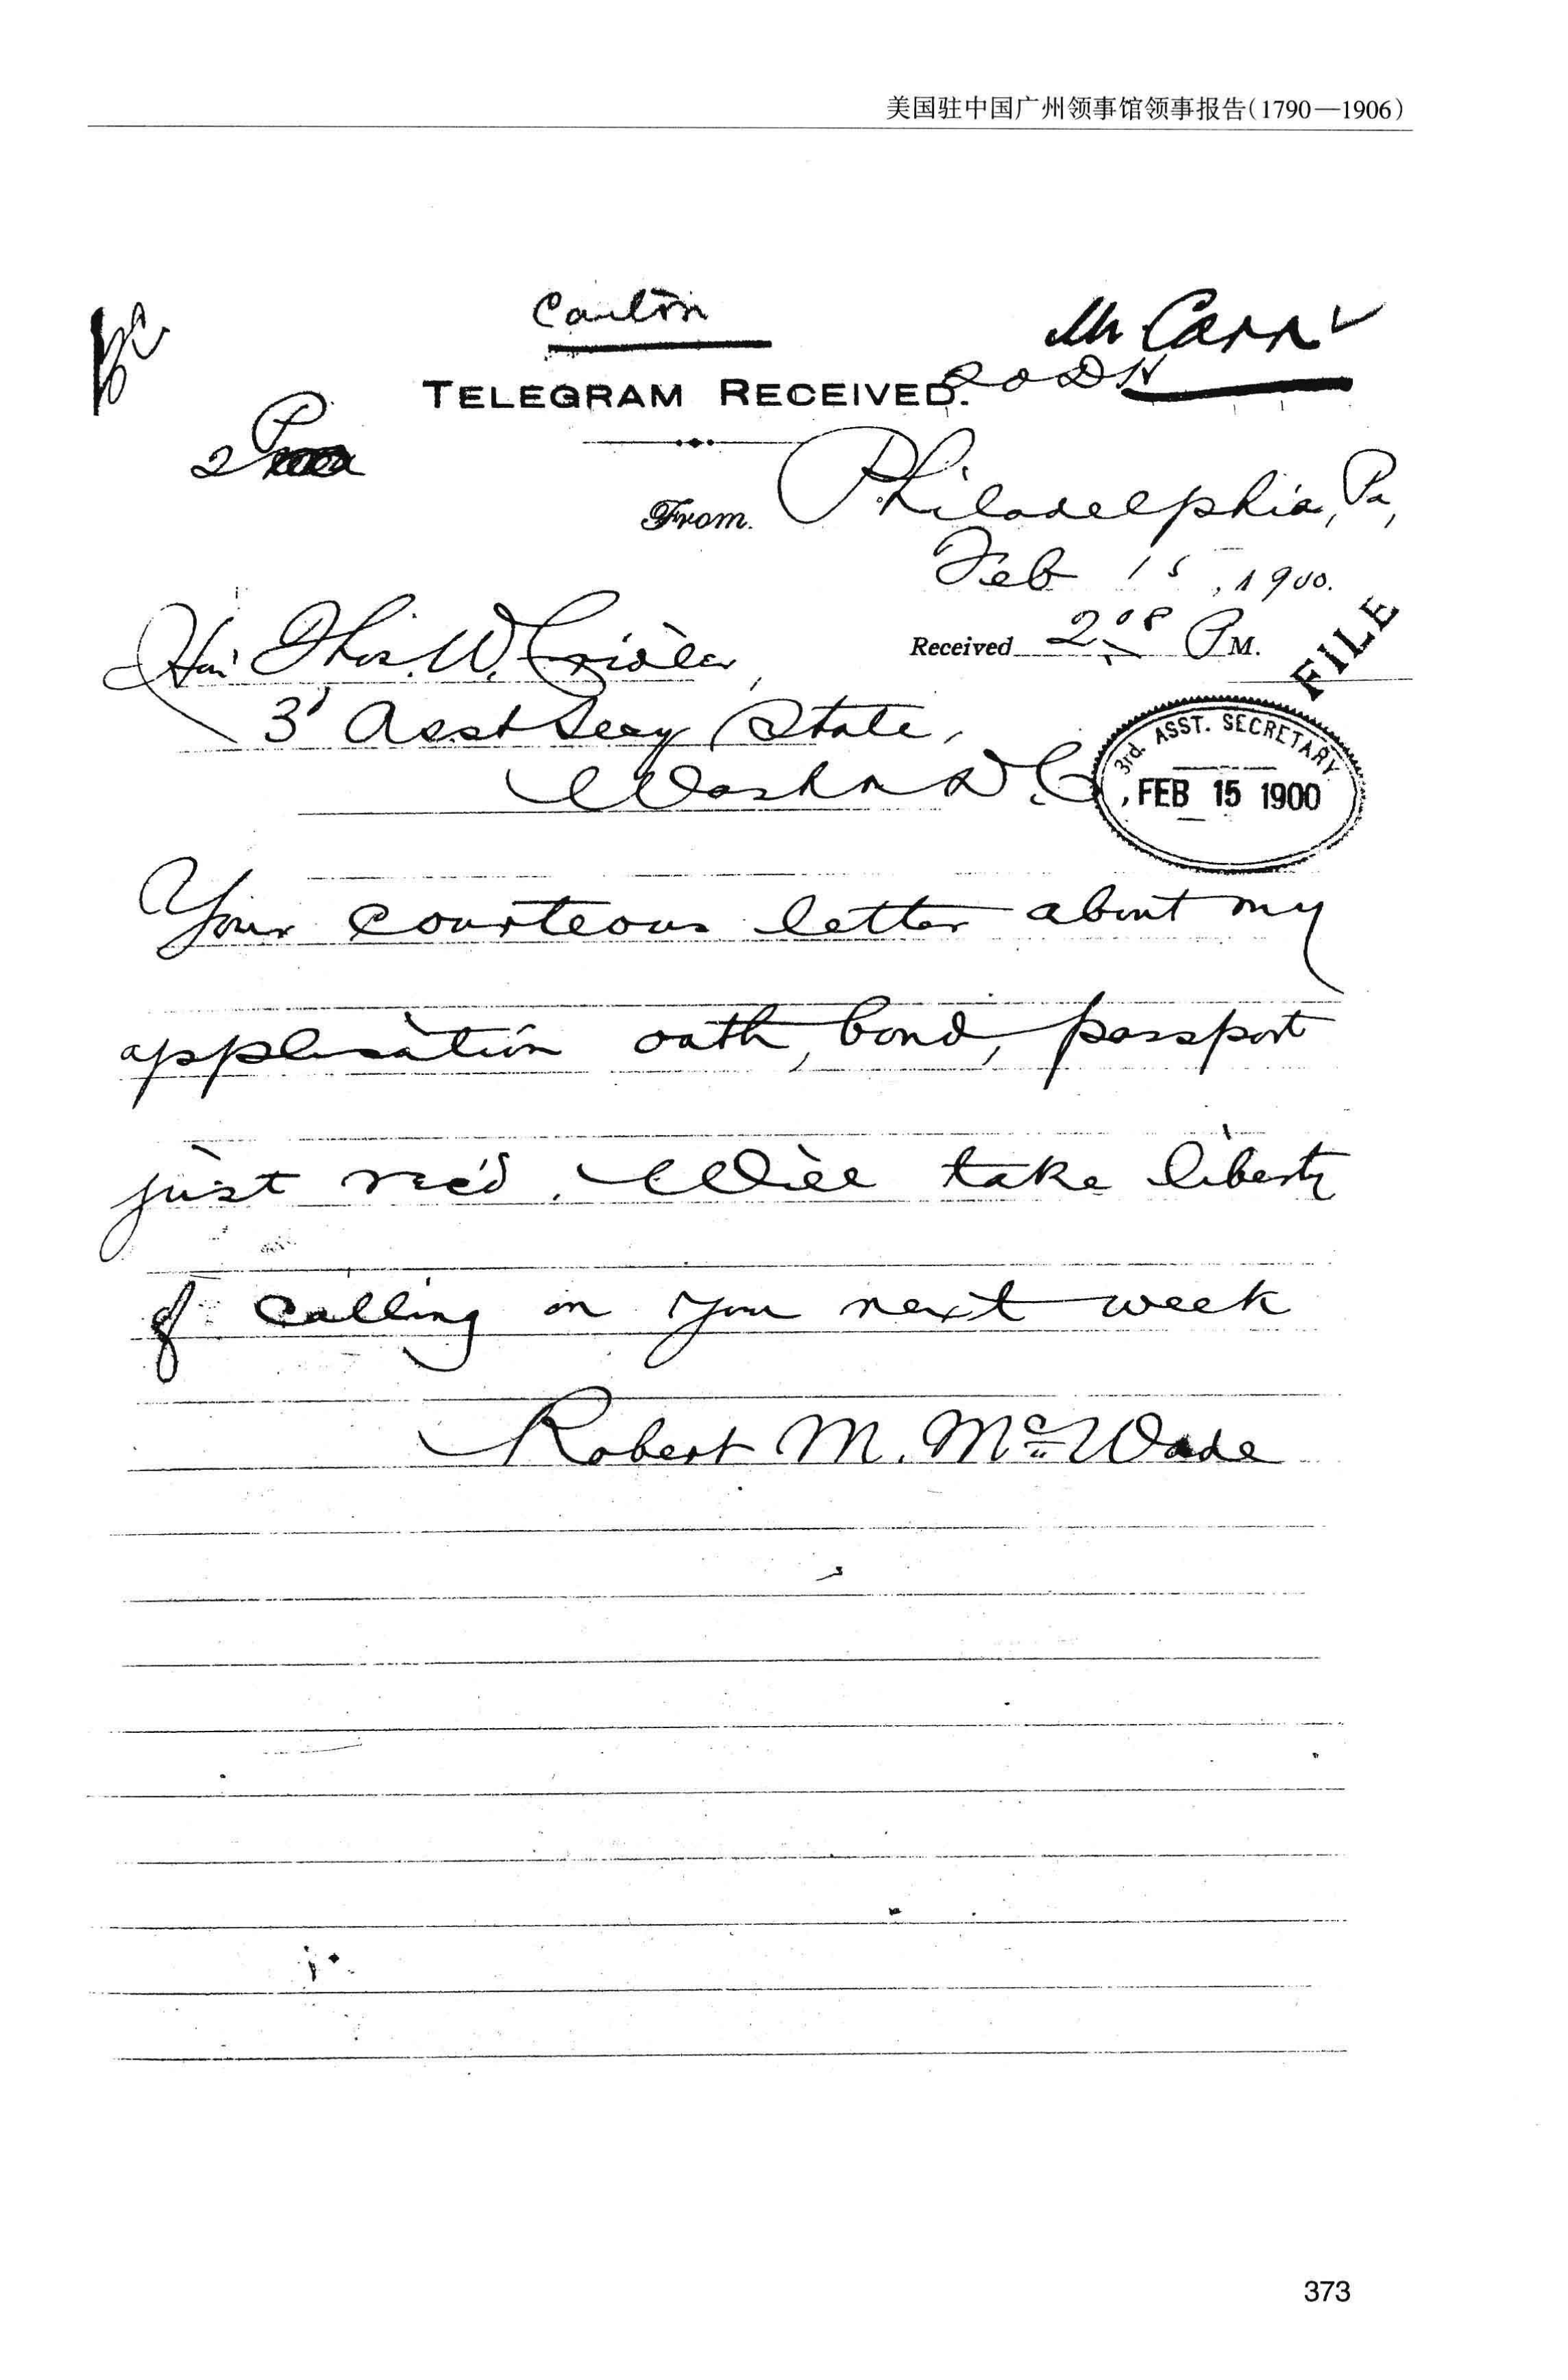 美国驻中国广州领事馆领事报告(1790—1906)
Canton
Mr Carr
TELEGRAM RECEIVED.
From Philadelphia, Pa,
Feb 15, 1900.
Received 2 08 PM.
FILE
Hon Thos. W. Cridler,
3d Asst Secy State,
Washn D.C.
3rd. ASST. SECRETARY
FEB 15 1900
Your courteous letter about my
application oath, bond, passport
just rec'd. Will take liberty
of calling on you next week
Robert M. McWade
373